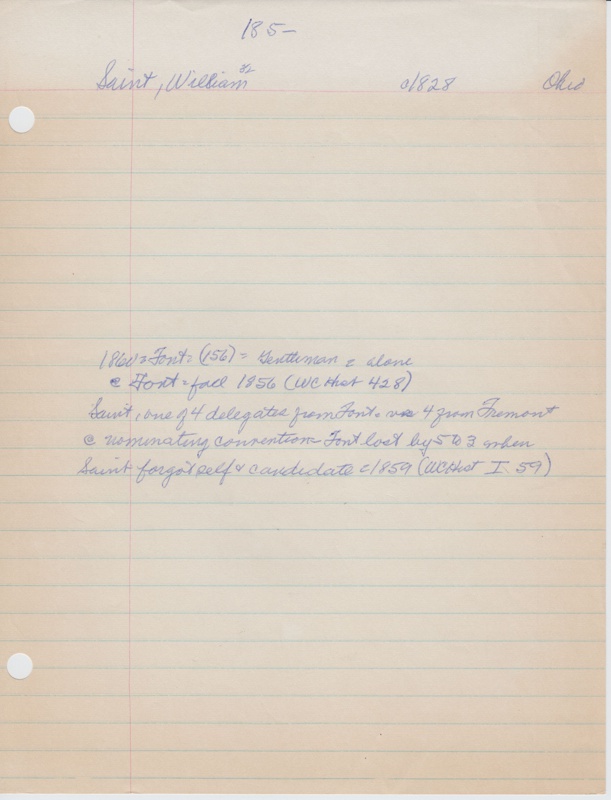 185-
Saint, William #2 c/1828 Ohio
1860 = Font = (156) = Gentleman = alone
@ Font = fall 1856 (WC Hist 428)
Saint, one of 4 delegates from Font. vs 4 from Fremont
@ nominating convention = Font lost by 5 to 3 when
Saint forgot self & candidate c/859 (WC Hist I 59)